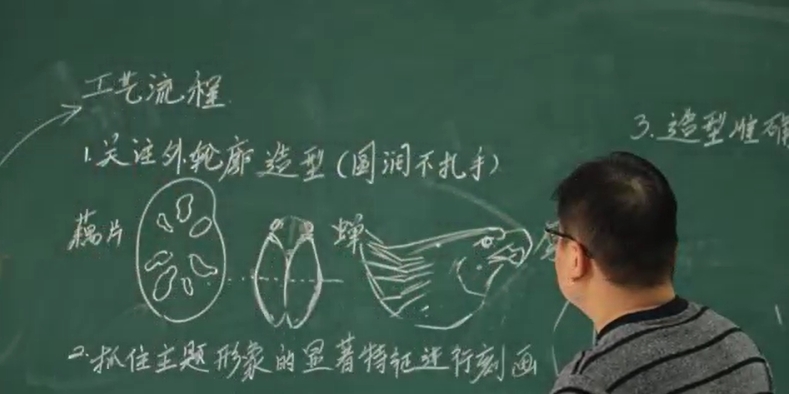 工艺流程
1.关注外轮廓造型(圆润不扎手)
3.造型准确
藕片
蝉
2.抓住主题形象的显著特征进行刻画